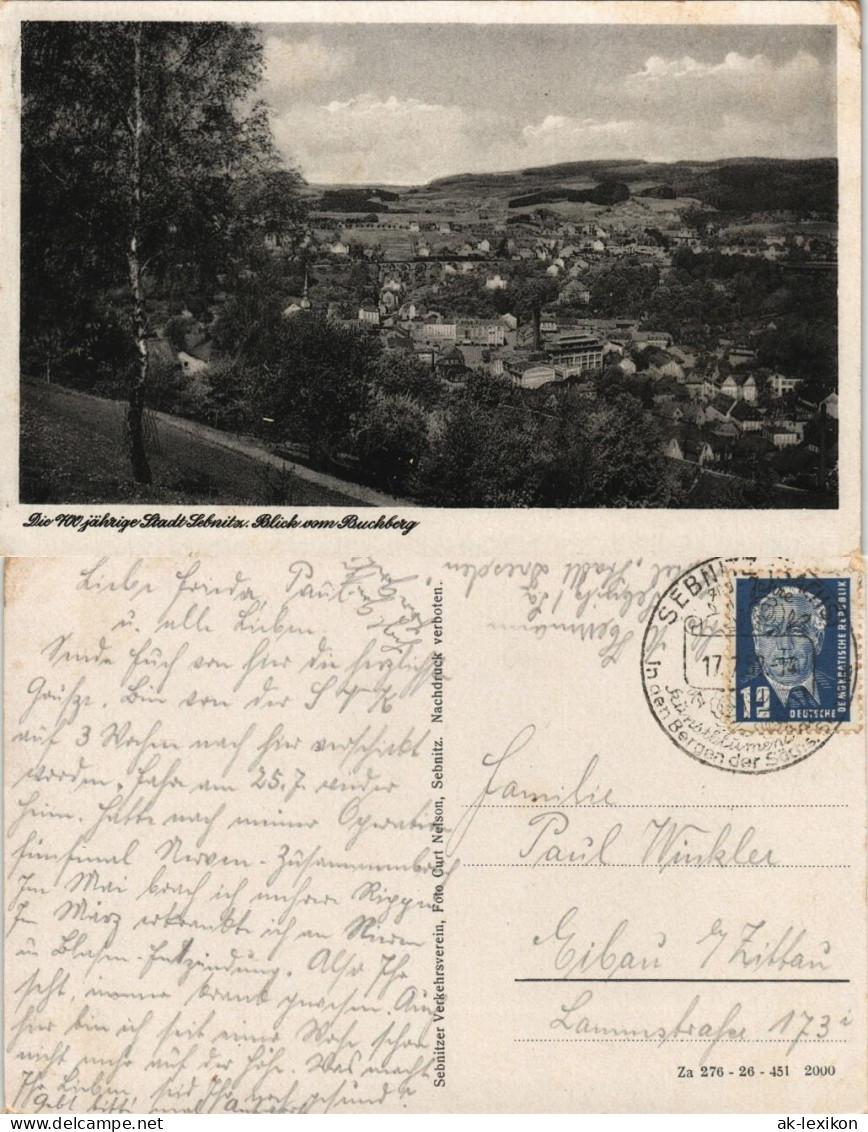 Die 700 jährige Stadt Sebnitz. Blick vom Buchberg
Liebe Frieda, Paul
u. alle Lieben.
Sende Euch von hier die herzlichsten
Grüße. Bin von der S V K
auf 3 Wochen nach hier verschickt
worden, fahre am 25.7. wieder
heim. Hatte nach meiner Operation
fünfmal Nerven-Zusammenbruch
Im Mai brach ich mehrere Rippen
Im März erkrankte ich an Nieren
u. Blasen-Entzündung. Also Ihr
seht, immer krank gewesen. Auch
hier bin ich seit einer Woche schon
nicht mehr auf der Höhe. Was macht
Ihr Lieben, seid Ihr noch gesund?
Gebt bitte mal Antwort
Sebnitzer Verkehrsverein, Foto Curt Nelson, Sebnitz. Nachdruck verboten.
Stadt Dresden
Sebnitz
SEBNITZ
17.7.52
Kunstblumen
In den Bergen der Sächs.
12
DEUTSCHE
DEMOKRATISCHE REPUBLIK
Familie
Paul Winkler
Eibau b/Zittau
Lammstraße 173
Za 276 - 26 - 451 2000
ak-lexikon